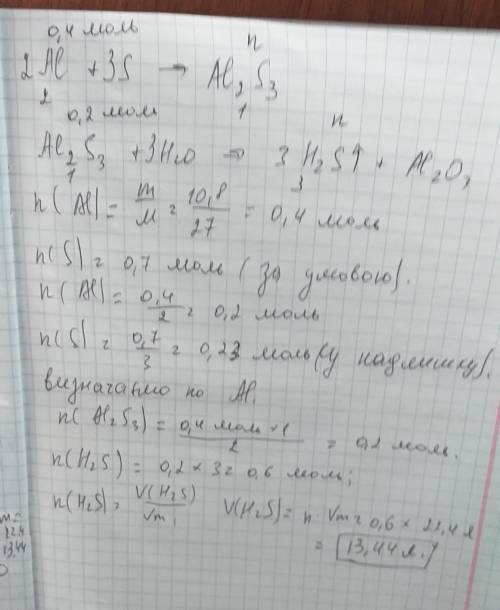 0,4 моль n
2Al + 3S → Al2S3
2 1
0,2 моль n
Al2S3 + 3H2O → 3H2S↑ + Al2O3
1 3
n(Al) = m/M = 10,8/27 = 0,4 моль
n(S) = 0,7 моль (за умовою).
n(Al) = 0,4/2 = 0,2 моль
n(S) = 0,7/3 = 0,23 моль (у надлишку).
визначаємо по Al.
n(Al2S3) = 0,4 моль × 1/2 = 0,2 моль.
n(H2S) = 0,2 × 3 = 0,6 моль;
n(H2S) = V(H2S)/Vm; V(H2S) = n · Vm = 0,6 × 22,4 л
= 13,44 л.
m =
22,4
13,44